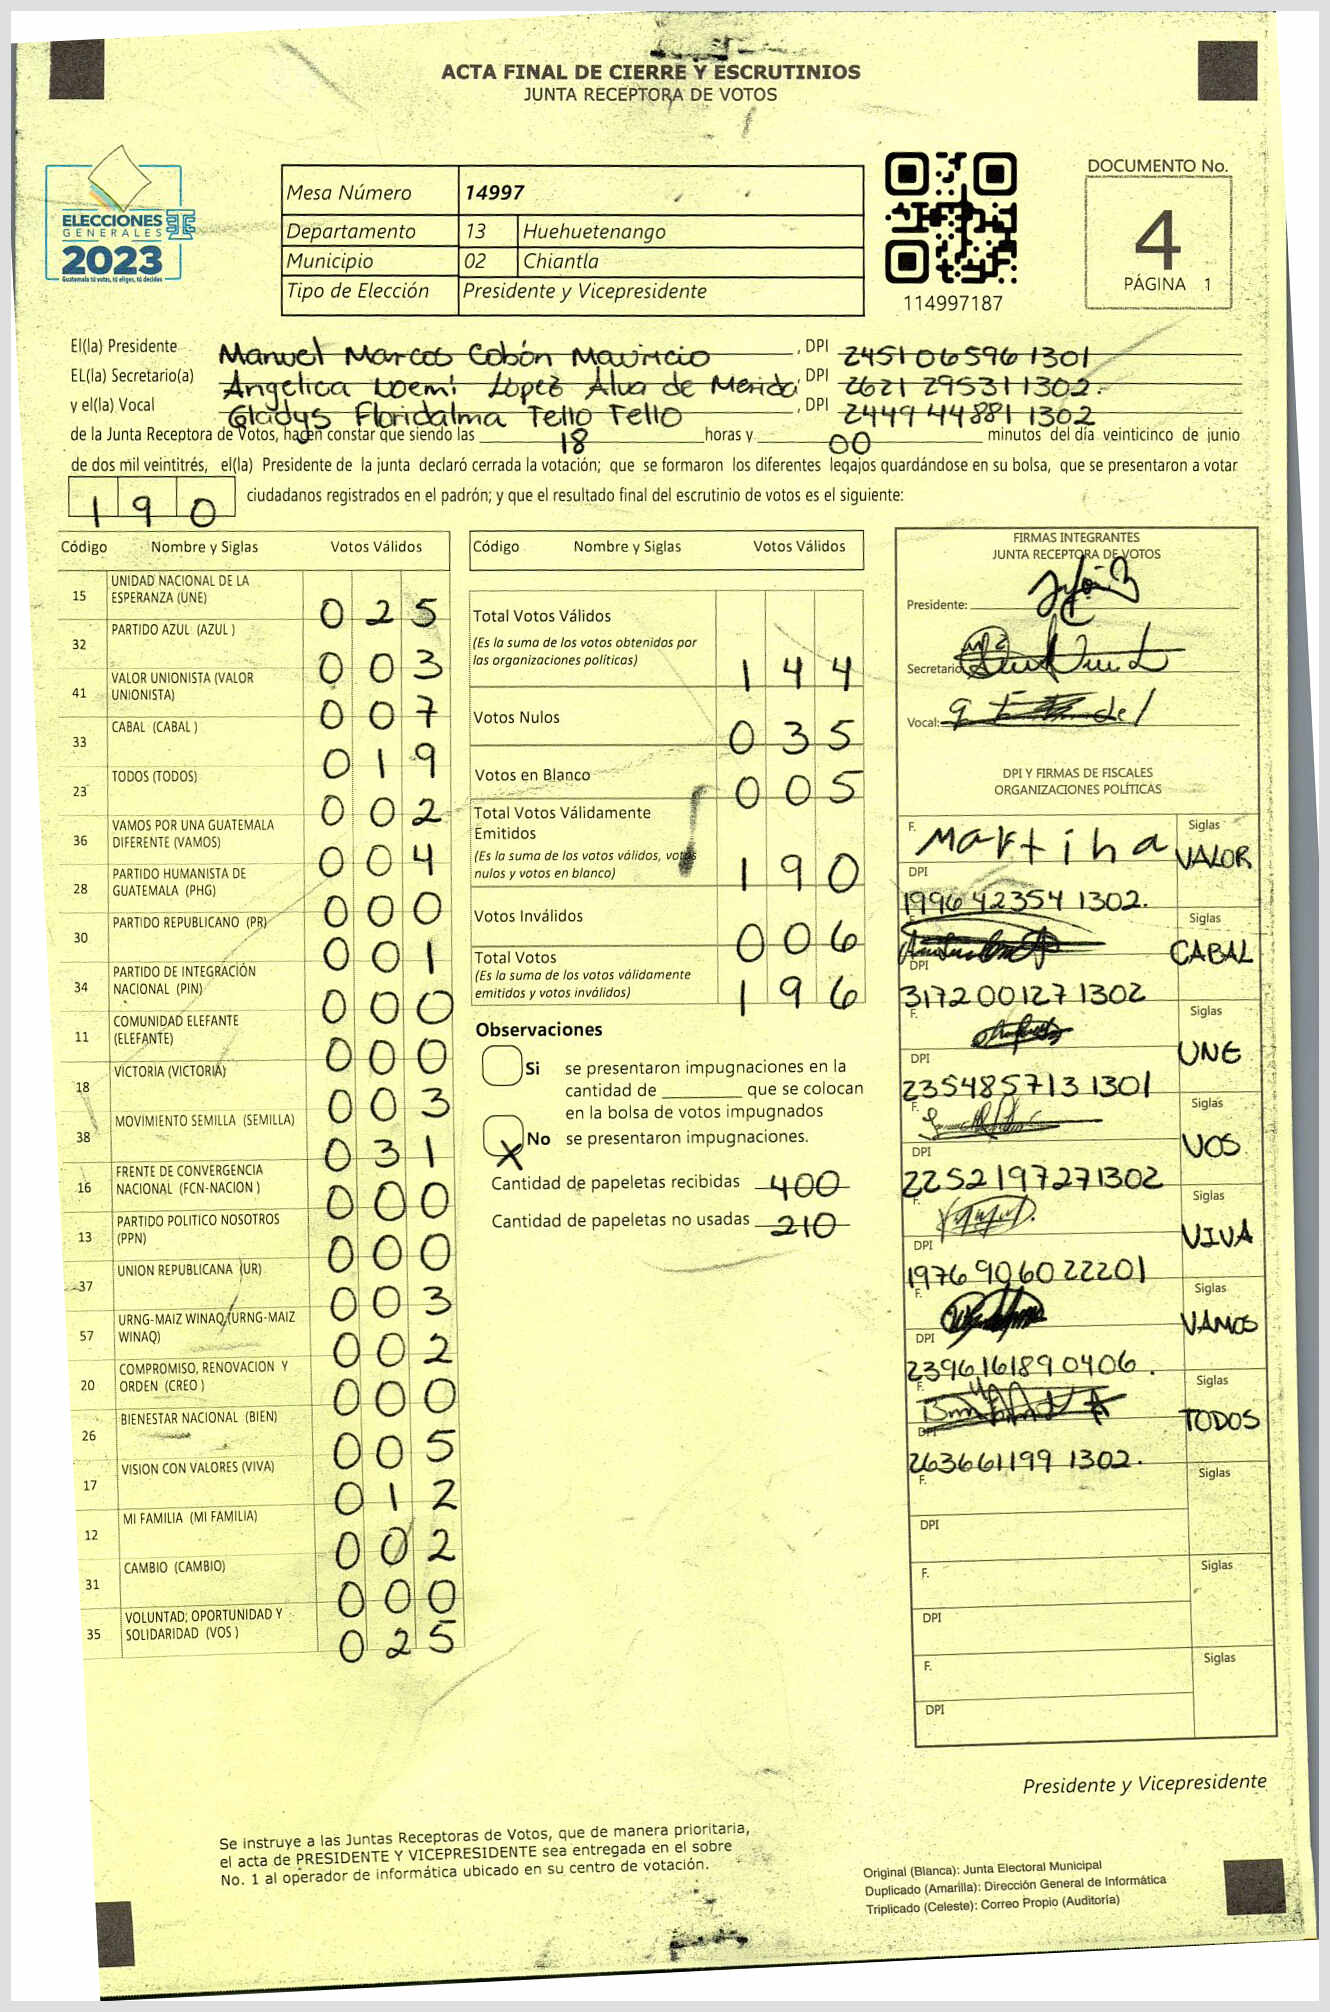 ACTA FINAL DE CIERRE Y ESCRUTINIOS
JUNTA RECEPTORA DE VOTOS
ELECCIONES
GENERALES
2023
Guatemala tú votas, tú eliges, tú decides
Mesa Número 14997
Departamento 13 Huehuetenango
Municipio 02 Chiantla
Tipo de Elección Presidente y Vicepresidente
114997187
DOCUMENTO No.
4
PÁGINA 1
El(la) Presidente Manuel Marcos Cobón Mauricio , DPI 2451 06596 1301
EL(la) Secretario(a) Angelica Loemi Lopez Alva de Merida , DPI 2621 29531 1302.
y el(la) Vocal Gladys Floridalma Tello Tello , DPI 2449 44881 1302
de la Junta Receptora de Votos, hacen constar que siendo las 18 horas y 00 minutos del día veinticinco de junio
de dos mil veintitrés, el(la) Presidente de la junta declaró cerrada la votación; que se formaron los diferentes legajos guardándose en su bolsa, que se presentaron a votar
190 ciudadanos registrados en el padrón; y que el resultado final del escrutinio de votos es el siguiente:
Código Nombre y Siglas Votos Válidos
15 UNIDAD NACIONAL DE LA ESPERANZA (UNE) 025
32 PARTIDO AZUL (AZUL ) 003
41 VALOR UNIONISTA (VALOR UNIONISTA) 007
33 CABAL (CABAL ) 019
23 TODOS (TODOS) 002
36 VAMOS POR UNA GUATEMALA DIFERENTE (VAMOS) 004
28 PARTIDO HUMANISTA DE GUATEMALA (PHG) 000
30 PARTIDO REPUBLICANO (PR) 001
34 PARTIDO DE INTEGRACIÓN NACIONAL (PIN) 000
11 COMUNIDAD ELEFANTE (ELEFANTE) 000
18 VICTORIA (VICTORIA) 003
38 MOVIMIENTO SEMILLA (SEMILLA) 031
16 FRENTE DE CONVERGENCIA NACIONAL (FCN-NACION ) 000
13 PARTIDO POLITICO NOSOTROS (PPN) 000
37 UNION REPUBLICANA (UR) 003
57 URNG-MAIZ WINAQ (URNG-MAIZ WINAQ) 002
20 COMPROMISO, RENOVACION Y ORDEN (CREO ) 000
26 BIENESTAR NACIONAL (BIEN) 005
17 VISION CON VALORES (VIVA) 012
12 MI FAMILIA (MI FAMILIA) 002
31 CAMBIO (CAMBIO) 000
35 VOLUNTAD, OPORTUNIDAD Y SOLIDARIDAD (VOS ) 025
Código Nombre y Siglas Votos Válidos
Total Votos Válidos
(Es la suma de los votos obtenidos por
las organizaciones políticas) 144
Votos Nulos 035
Votos en Blanco 005
Total Votos Válidamente
Emitidos
(Es la suma de los votos válidos, votos
nulos y votos en blanco) 190
Votos Inválidos 006
Total Votos
(Es la suma de los votos válidamente
emitidos y votos inválidos) 196
Observaciones
Si se presentaron impugnaciones en la
cantidad de que se colocan
en la bolsa de votos impugnados
X No se presentaron impugnaciones.
Cantidad de papeletas recibidas 400
Cantidad de papeletas no usadas 210
FIRMAS INTEGRANTES
JUNTA RECEPTORA DE VOTOS
Presidente:
Secretario
Vocal:
DPI Y FIRMAS DE FISCALES
ORGANIZACIONES POLÍTICAS
F. Martina Siglas VALOR
DPI 1996 42354 1302.
Siglas CABAL
DPI 3172 00127 1302
F. Siglas UNE
DPI 2354 85713 1301
F. Siglas VOS
DPI 2252 19727 1302
F. Siglas VIVA
DPI 1976 90602 2201
F. Siglas VAMOS
DPI 2396 16189 0406.
F. Siglas TODOS
DPI 2636 61199 1302.
F. Siglas
DPI
F. Siglas
DPI
F. Siglas
DPI
Presidente y Vicepresidente
Se instruye a las Juntas Receptoras de Votos, que de manera prioritaria,
el acta de PRESIDENTE Y VICEPRESIDENTE sea entregada en el sobre
No. 1 al operador de informática ubicado en su centro de votación.
Original (Blanca): Junta Electoral Municipal
Duplicado (Amarilla): Dirección General de Informática
Triplicado (Celeste): Correo Propio (Auditoría)